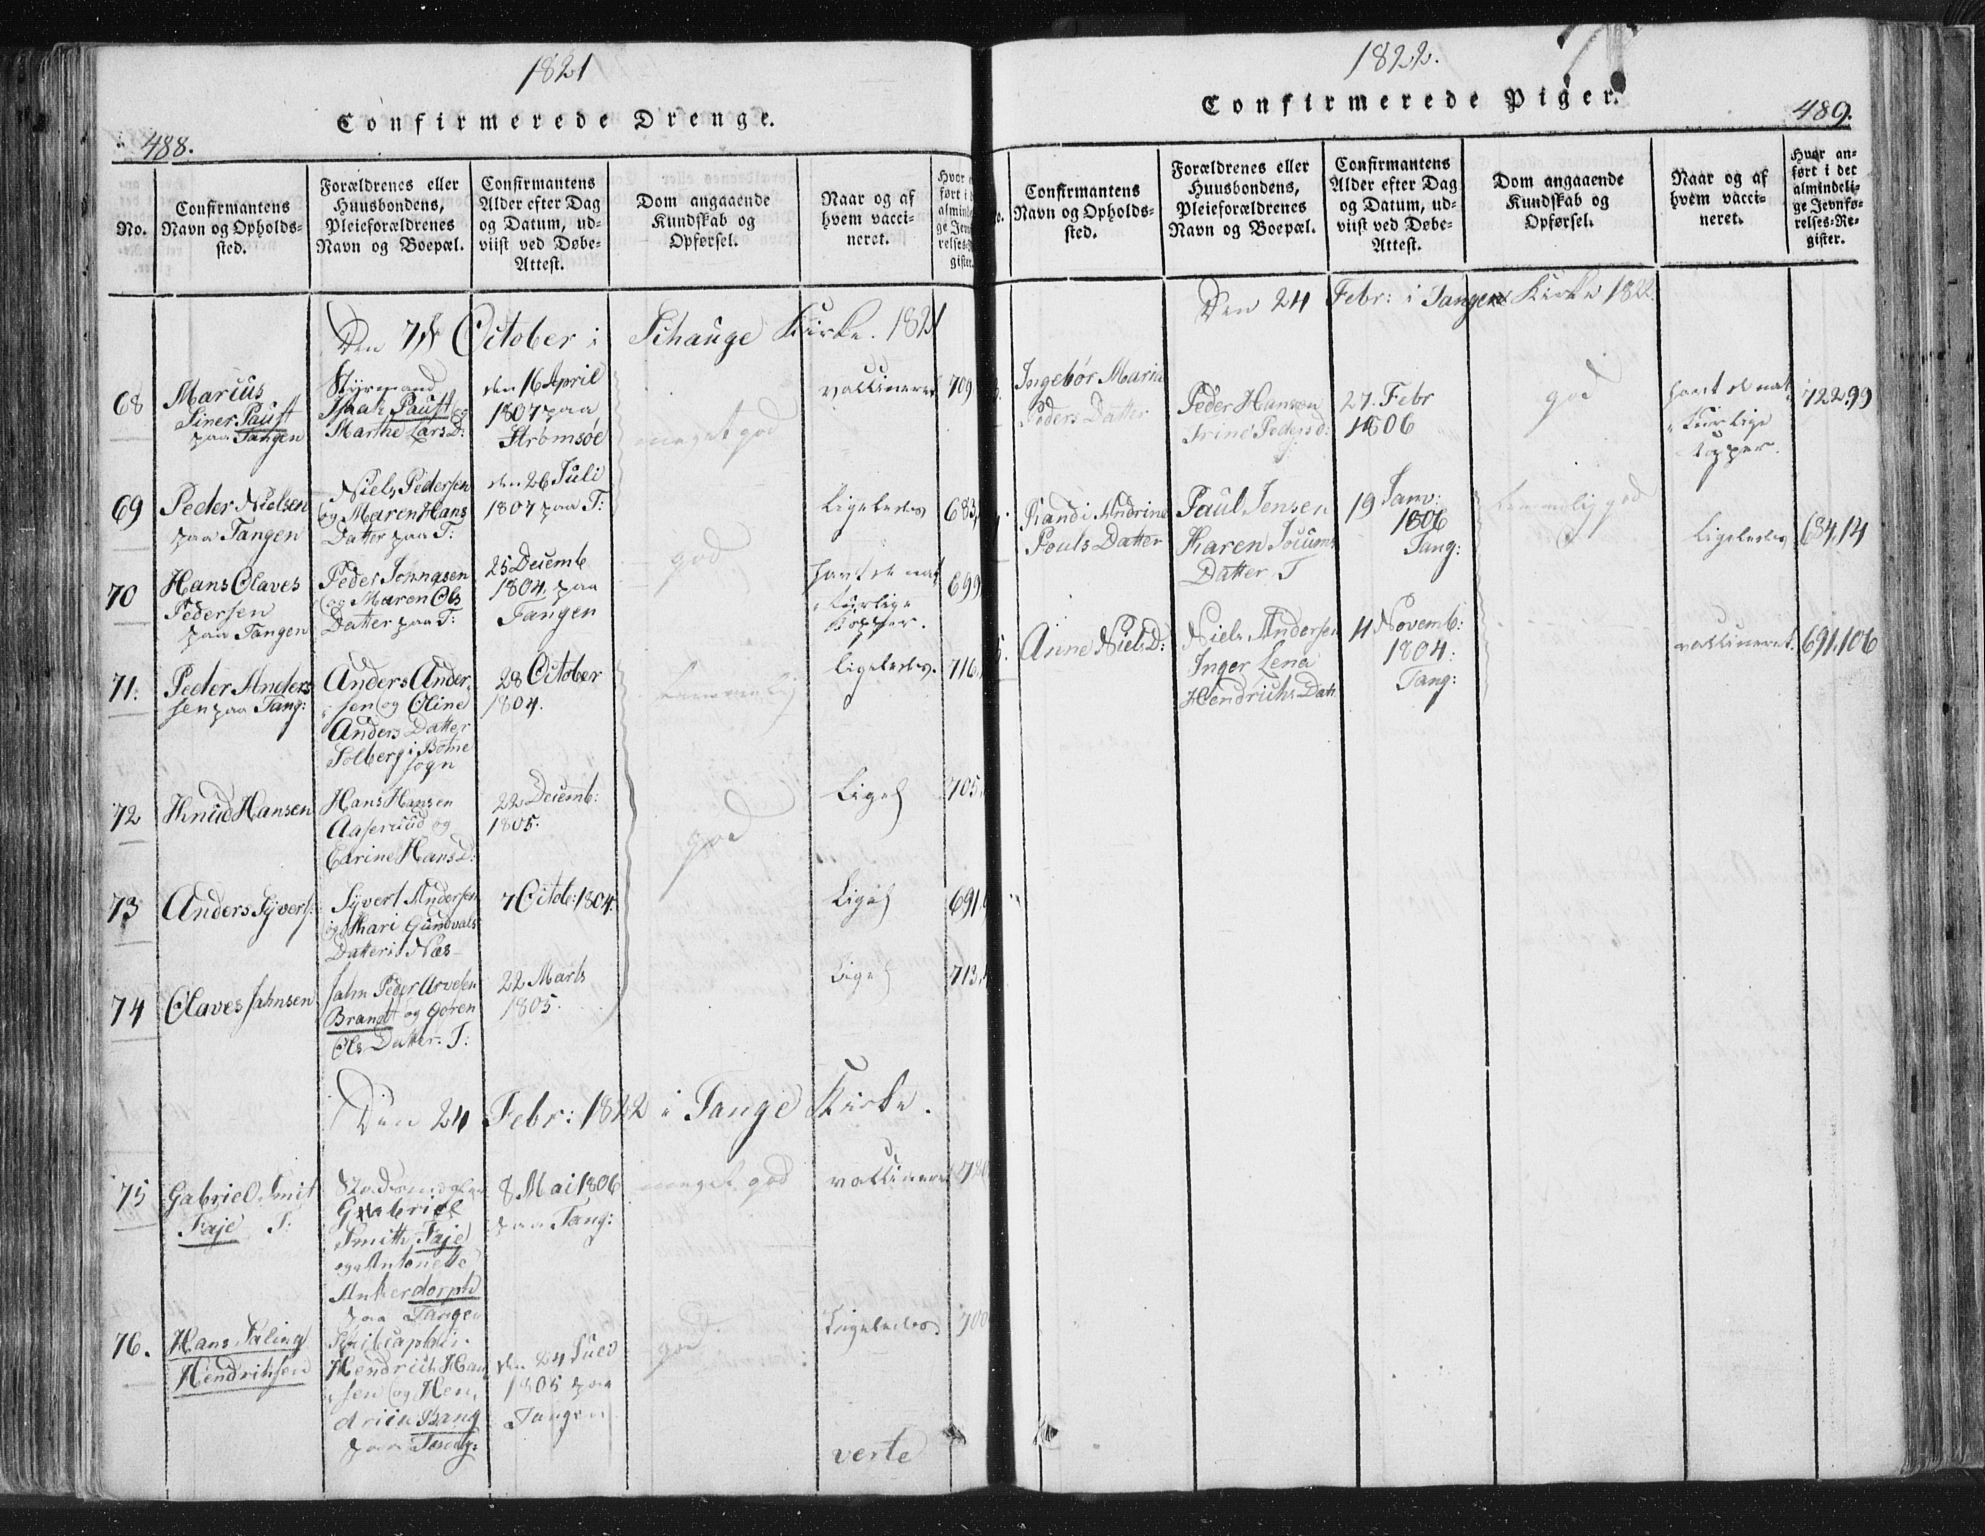 1821
Confirmerede Drenge.
488.
No.
Confirmantens
Navn og Opholds-
sted.
Forældrenes eller
Huusbondens,
Pleieforældrenes
Navn og Boepæl.
Confirmantens
Alder efter Dag
og Datum, ud-
viist ved Døbe-
Attest.
Dom angaaende
Kundskab og
Opførsel.
Naar og af
hvem vacci-
neret.
Den 7de October i Schauge Kirke. 1821
68
Marius
Paust
paa Tangen
Styrmand
Isaak Paust og
Marthe Lars D:
den 16 April
1807 paa
Strømsøe
meget god
709
69
Peder Nielsen
paa Tangen
Niels Pedersen
og Maren Hans
Datter paa T:
den 26 Juli
1807 paa T:
god
Ligeledes
683,
70
Hans Olaves
Pedersen
paa Tangen
Peder
og Maren Ols
Datter paa T:
25 Decemb
1804. paa
Tangen
havt de nat
turlige
Kopper.
699
71.
Peder Anders
sen paa Tang:
Anders Ander
sen og Oline
Anders Datter
Solberg i Botne
sogn
28 October
1804.
temmelig
ligeledes.
716,
72
Knud Hansen
Hans Hansen
Aaserud og
Carine Hans D:
22 Decemb:
1805.
god
Ligel
705,
73
Anders Syvers:
Syvert Andersen
og Mari Gundvals
Datter i Næs
7 Octob: 1804.
Ligel
691,
74
Olaves Jahnsen
Jahn Peder Arvesen
Brandt og Gøren
Ols Datter. T:
22 Marts
1805.
Ligel
713,
Den 24 Febr: 1822 i Tange Kirke.
75
Gabriel Smit
Faje T:
Gabriel
Smith Faje
og Antonette
Ankerdorph
paa Tangen
8 Mai 1806
paa Tang:
meget god
76.
Hans Paling
Hendriksen
Skibcaptein
Hendrich Han
sen og Hen
Bang
paa Tang:
den 24 Juli
1805 paa
Tangen
god
Ligeledes
700
verte
1822.
Confirmerede Piger.
489.
Confirmantens
Navn og Opholds-
sted.
Forældrenes eller
Huusbondens,
Pleieforældrenes
Navn og Boepæl.
Confirmantens
Alder efter Dag
og Datum, ud-
viist ved Døbe-
Attest.
Dom angaaende
Kundskab og
Opførsel.
Naar og af
hvem vacci-
neret.
Hvor an-
ført i det
almindeli-
ge Jevnfø-
relses-Re-
gister.
Den 24 Febr: i Tangen Kirke 1822.
Ingebor Maria
Peders Datter
Peder Hansen
Trine Peders D:
27. Febr
1806
god
havt de nat
turlige
Kopper.
722.99
Randi Andrine
Pouls Datter
Paul Jensen
Karen Jocums
Datter. T
19 Janv:
1806
Tang:
temmelig god
Ligeledes
684,14
Anne Niels D:
Niels Andersen
Inger Lena
Hendrichs Datt
4 Novemb:
1804:
Tang:
vaccineret.
691,106